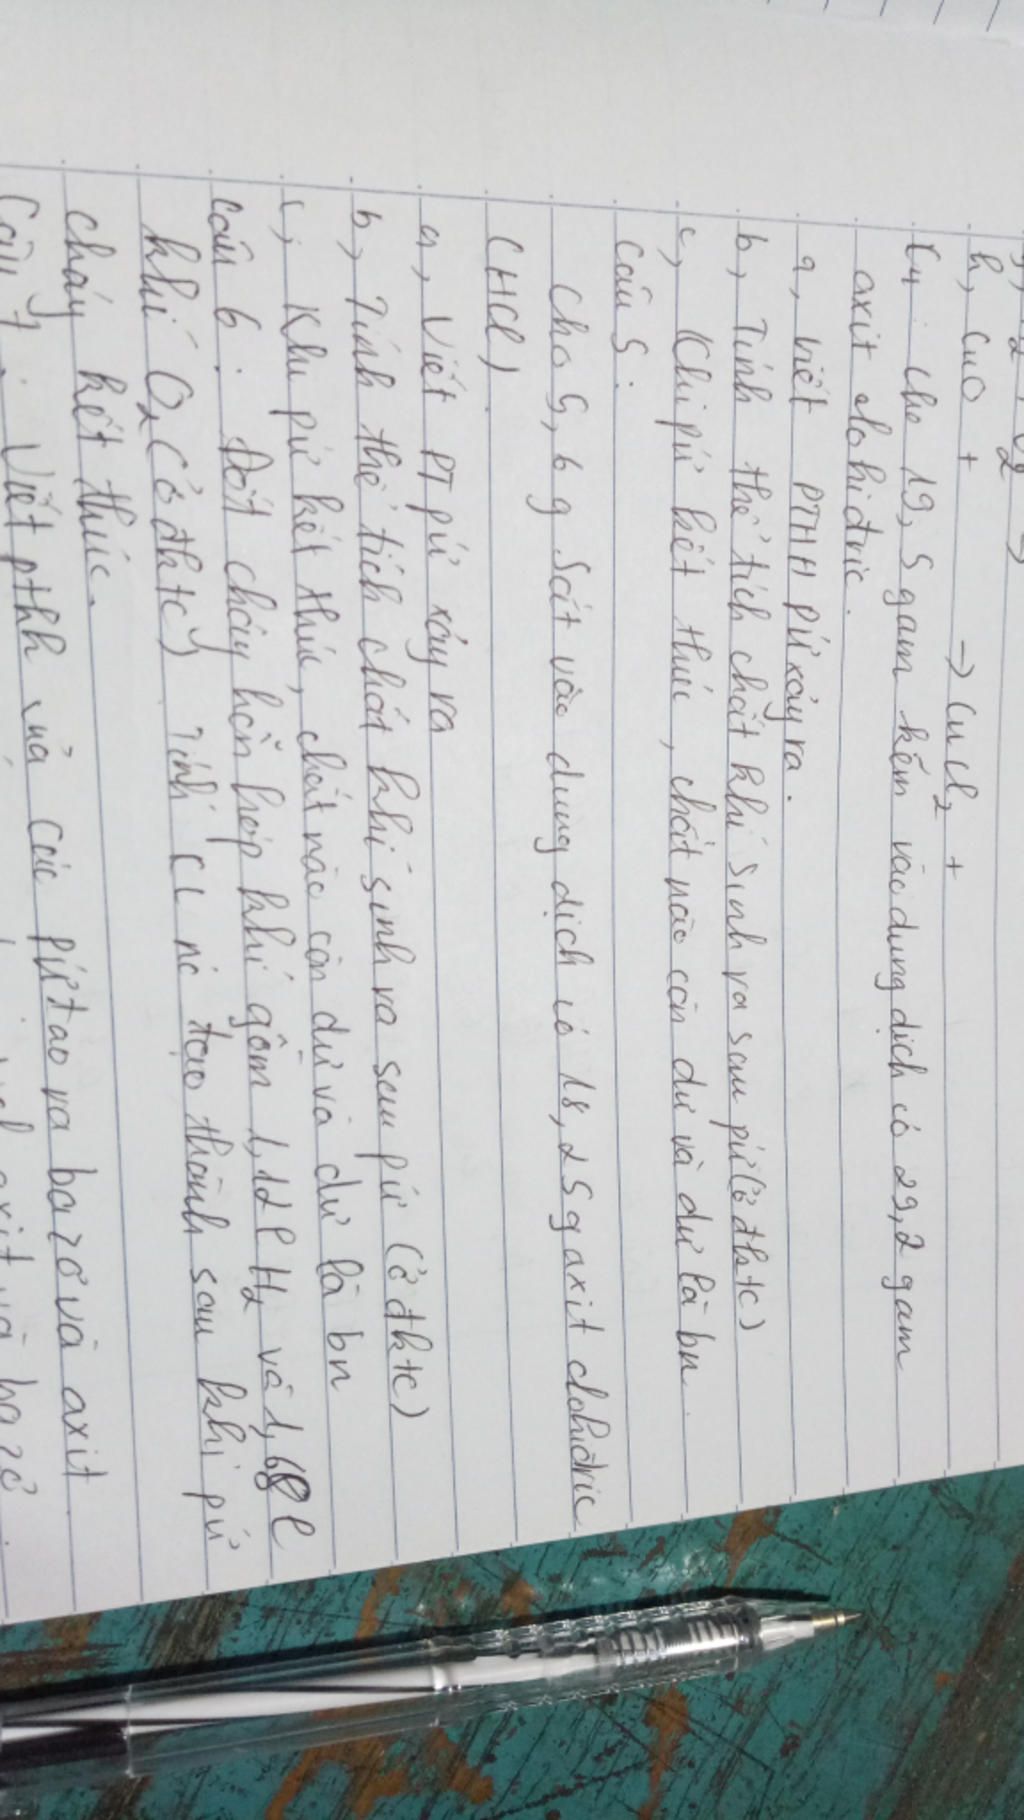 h, CuO + → CuCl2 +
C4: cho 19,5 gam kẽm vào dung dịch có 29,2 gam
axit clohiđric.
a, viết PTHH pứ xảy ra.
b, Tính thể tích chất khí sinh ra sau pứ (ở đktc)
c, Khi pứ kết thúc, chất nào còn dư và dư là bn.
Câu 5:
Cho 5,6 g Sắt vào dung dịch có 18,25g axit clohiđric
(HCl)
a, Viết PT pứ xảy ra
b, Tính thể tích chất khí sinh ra sau pứ (ở đktc)
c, Khi pứ kết thúc, chất nào còn dư và dư là bn
câu 6: Đốt cháy hỗn hợp khí gồm 1,12l H2 và 1,68l
khí O2 (ở đktc) Tính nc tạo thành sau khi pứ
cháy kết thúc.
Câu 7: Viết pthh của các pứ tạo ra bazơ và axit